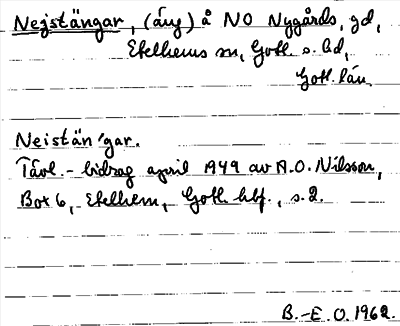 Nejstängar, (äng) å NO Nygårds, gd,
Etelhems sn, Gotl. s. hd,
Gotl. län.
Neistän'gar.
Tävl.-bidrag april 1949 av A.O. Nilsson,
Box 6, Etelhem, Gotl. hbf., s. 2.
B.-E. O. 1962.